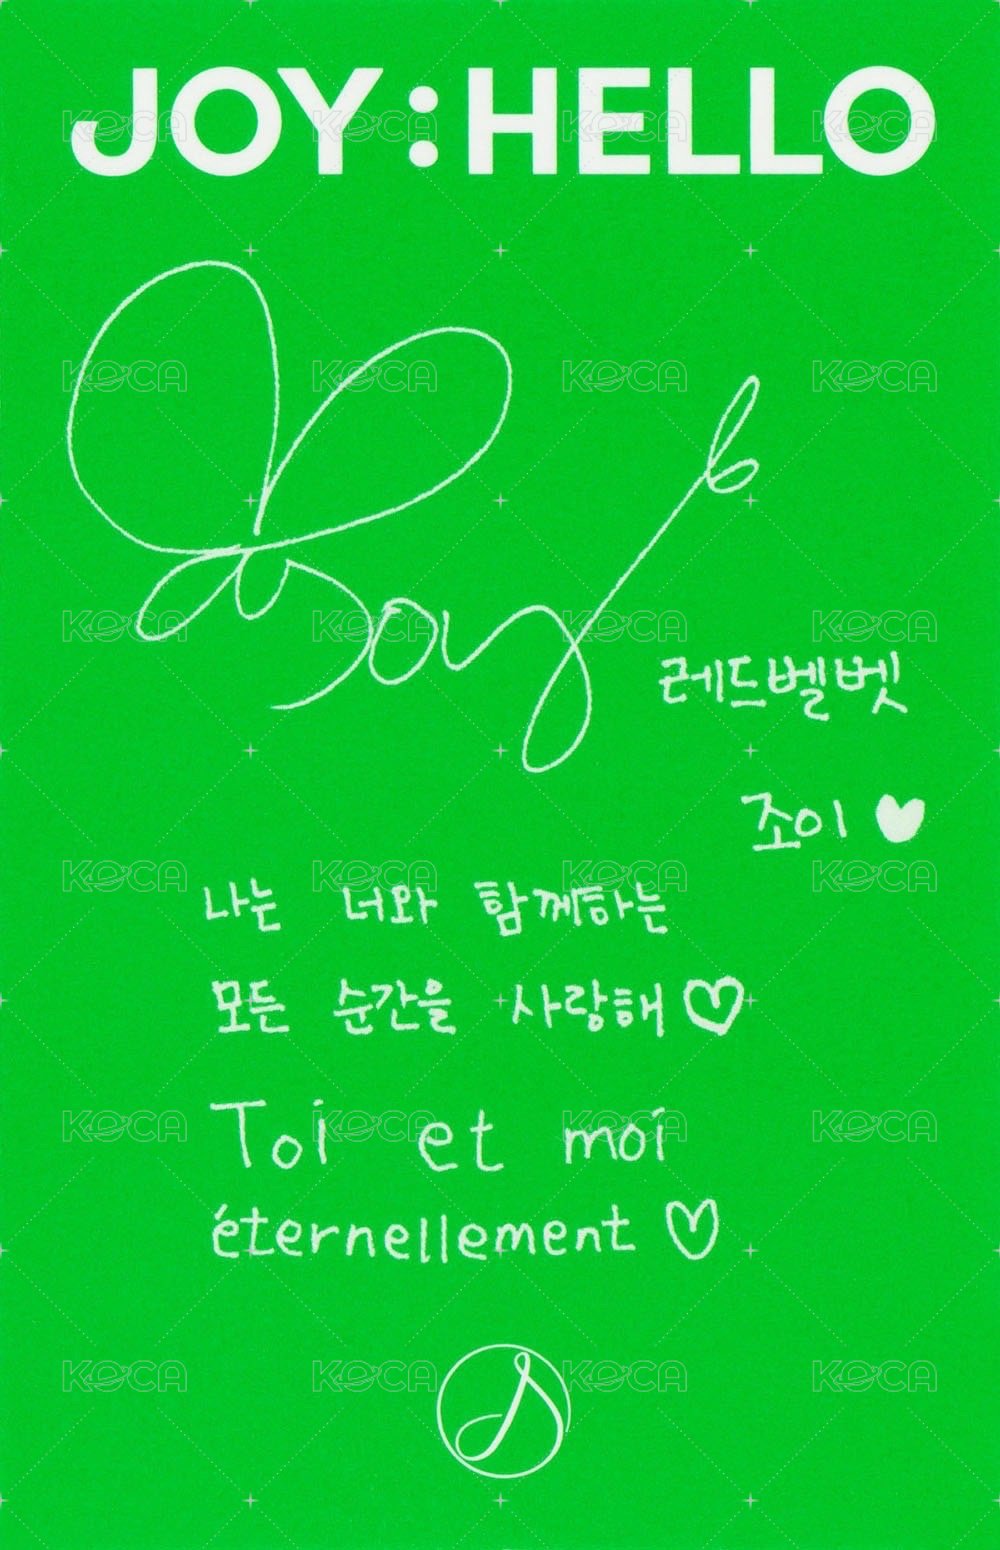 JOY:HELLO
Joy
레드벨벳
조이 ♥
나는 너와 함께하는
모든 순간을 사랑해 ♡
Toi et moi
éternellement ♡
KOCA